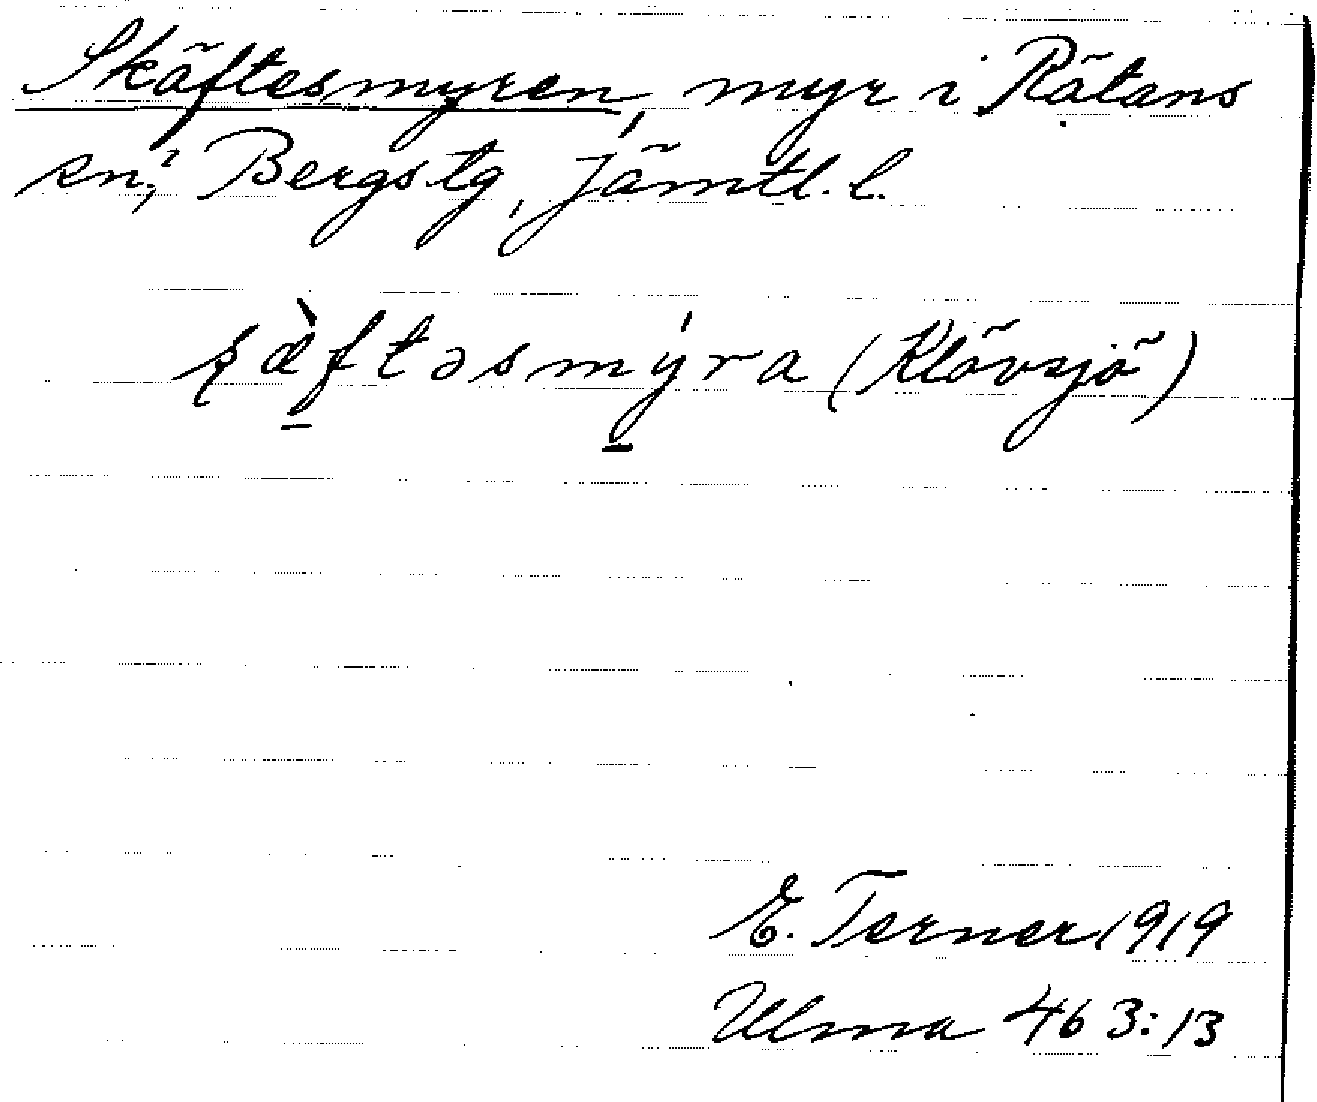 Skäftesmyren, myr i Rätans
sn; Bergs tg, Jämtl. l.
ʂæ̀ftəsmýra (Klövsjö)
E. Terner 1919
Ulma 463:13